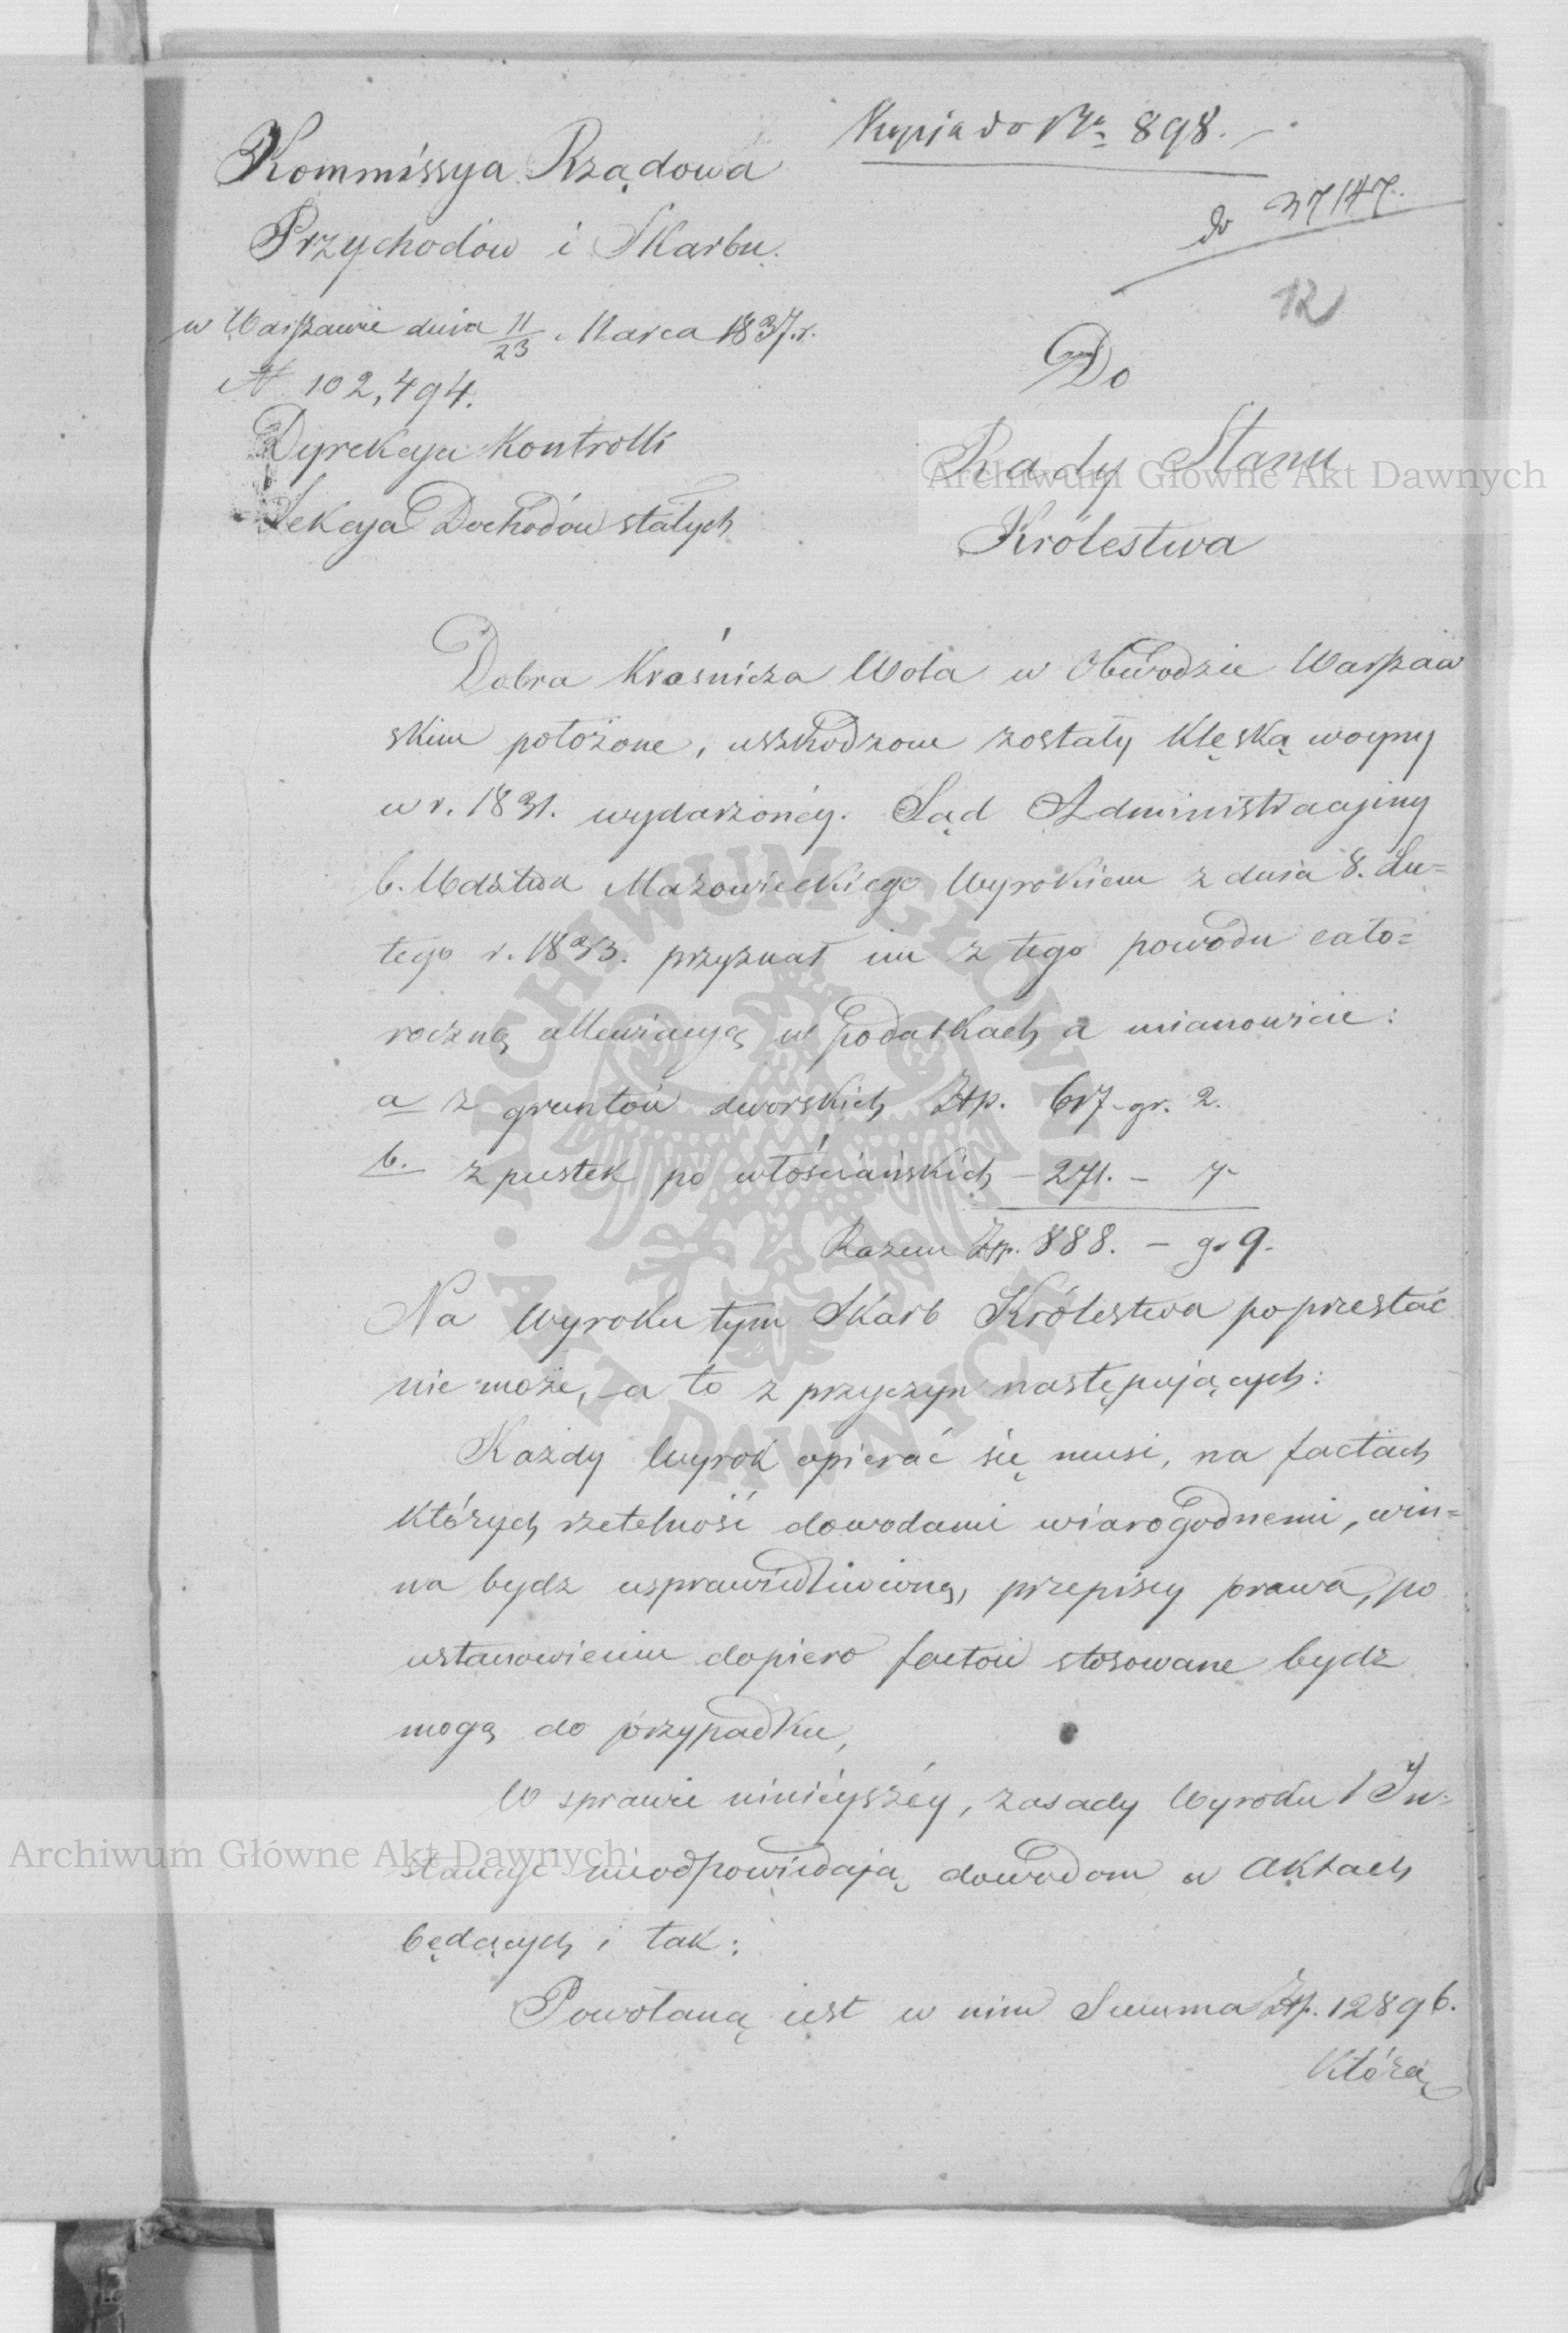 Kopia do Nr 898.
do 37147.
12
Kommissya Rządowa
Przychodów i Skarbu.
w Warszawie dnia 11/23 Marca 1837. r.
N 102,494.
Dyrekcya Kontrolli
Sekcya Dochodów stałych
Do
Rady Stanu
Królestwa
Dobra Kraśnicza Wola w Obwodzie Warszaw
skim położone, uszkodzone zostały klęską woyny
w r. 1831. wydarzonéy. Sąd Administracyiny
b. Wdztwa Mazowieckiego Wyrokiem z dnia 8. Lu=
tego r. 1833. przyznał im z tego powodu cało=
roczną allewiacyą w podatkach a mianowicie:
a z gruntów dworskich Złp. 617 - gr. 2.
b. z pustek po włościańskich - 271. - 7
Razem Złp. 888. - gr 9.
Na Wyroku tym Skarb Królestwa poprzestać
nie może, a to z przyczyn następujących:
Każdy Wyrok opierać się musi, na factach
których rzetelność dowodami wiarogodnemi, win=
na bydz usprawiedliwioną, przepisy prawa, po
ustanowieniu dopiero factów stosowane bydz
mogą do przypadku,
W sprawie ninieyszéy, zasady Wyroku 1 In=
stancyi nieodpowiedaią dowodom w Aktach
będących i tak:
Powołaną iest w nim Summa Złp. 12896.
którą
Archiwum Główne Akt Dawnych
Archiwum Główne Akt Dawnych
ARCHIWUM GŁÓWNE · AKT DAWNYCH